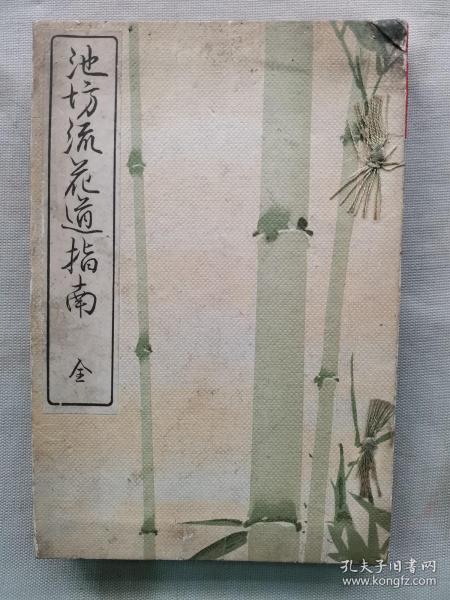 池坊流花道指南
全
孔夫子旧书网
www.kongfz.com